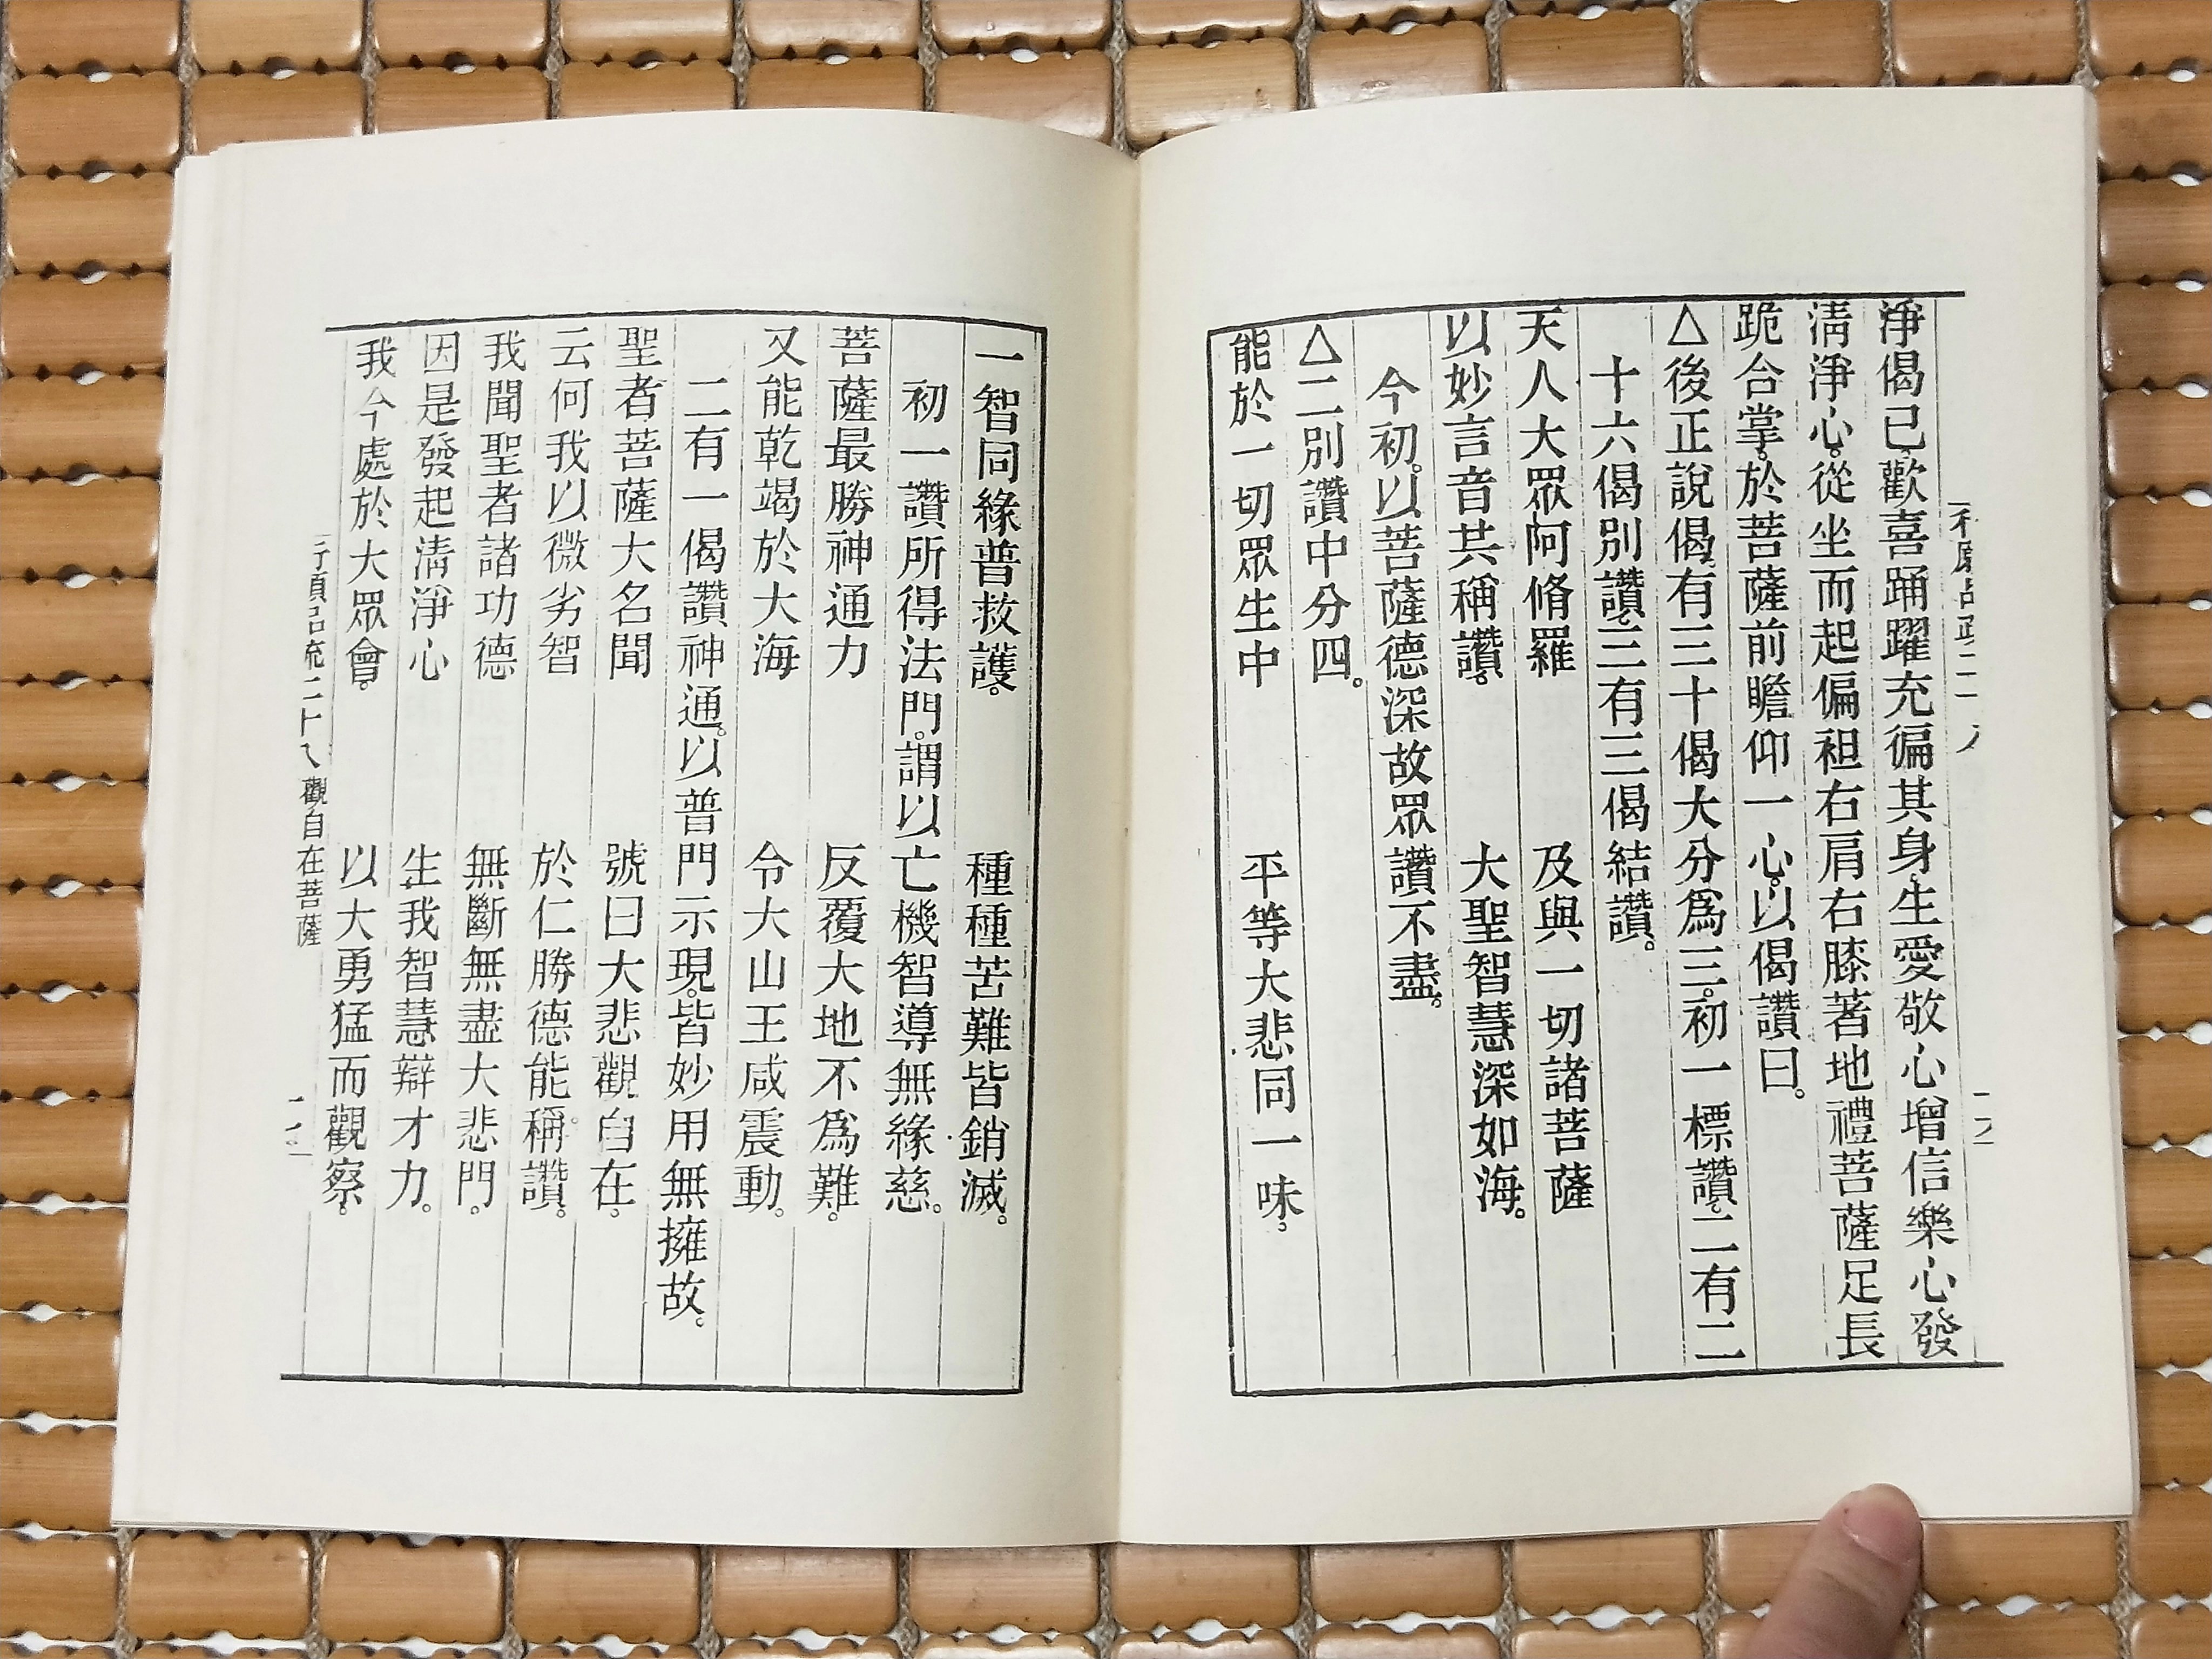 淨偈已。歡喜踊躍充徧其身。生愛敬心增信樂心發
清淨心。從坐而起偏袒右肩右膝著地禮菩薩足長
跪合掌。於菩薩前瞻仰一心。以偈讚曰。
△後正說偈。有三十偈大分爲三。初一標讚。二有二
十六偈別讚。三有三偈結讚。
天人大眾阿脩羅 及與一切諸菩薩
以妙言音共稱讚。 大聖智慧深如海。
今初。以菩薩德深故眾讚不盡。
△二別讚中分四。
能於一切眾生中 平等大悲同一味。
一智同緣普救護。 種種苦難皆銷滅。
初一讚所得法門。謂以亡機智導無緣慈。
菩薩最勝神通力 反覆大地不爲難。
又能乾竭於大海 令大山王咸震動。
二有一偈讚神通。以普門示現。皆妙用無擁故。
聖者菩薩大名聞 號曰大悲觀自在。
云何我以微劣智 於仁勝德能稱讚。
我聞聖者諸功德 無斷無盡大悲門。
因是發起清淨心 生我智慧辯才力。
我今處於大眾會。 以大勇猛而觀察。
觀自在菩薩